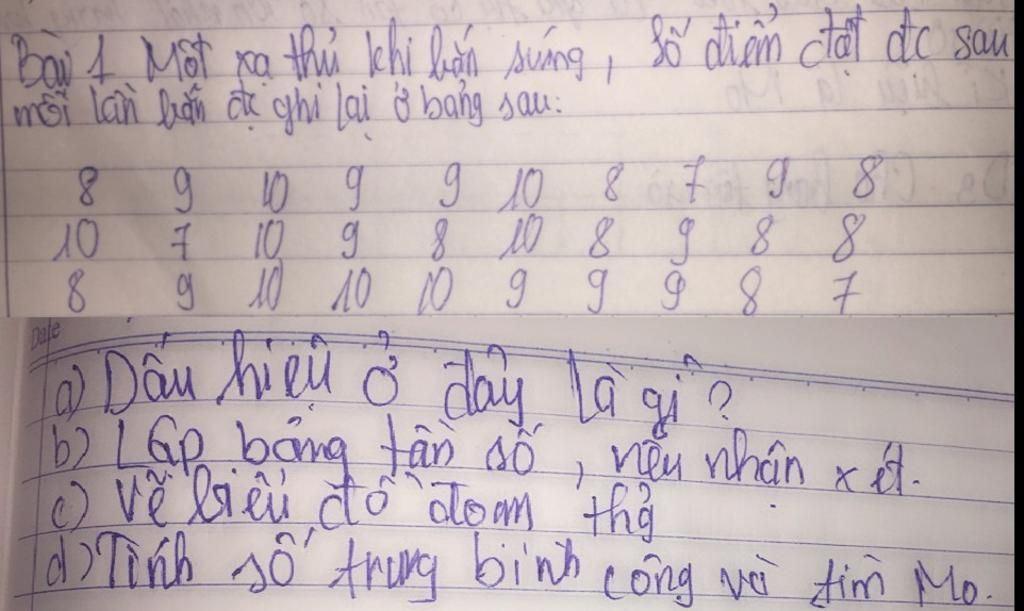 Bài 1 Một xạ thủ khi bắn súng, số điểm đạt đc sau
mỗi lần bắn đc ghi lại ở bảng sau:
8 9 10 9 9 10 8 7 9 8
10 7 10 9 8 10 8 9 8 8
8 9 10 10 10 9 9 9 8 7
Date
a) Dấu hiệu ở đây là gì?
b) Lập bảng tần số, nêu nhận xét.
c) Vẽ biểu đồ đoạn thg
d) Tính số trung bình cộng và tìm Mo.